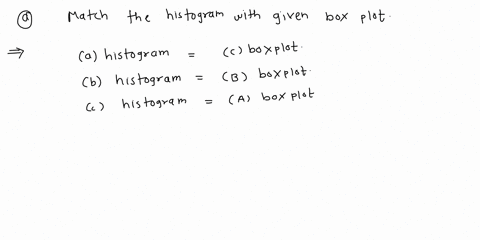 ⓐ Match the histogram with given box plot.
⇒ (a) histogram = (c) boxplot.
(b) histogram = (B) boxplot.
(c) histogram = (A) boxplot